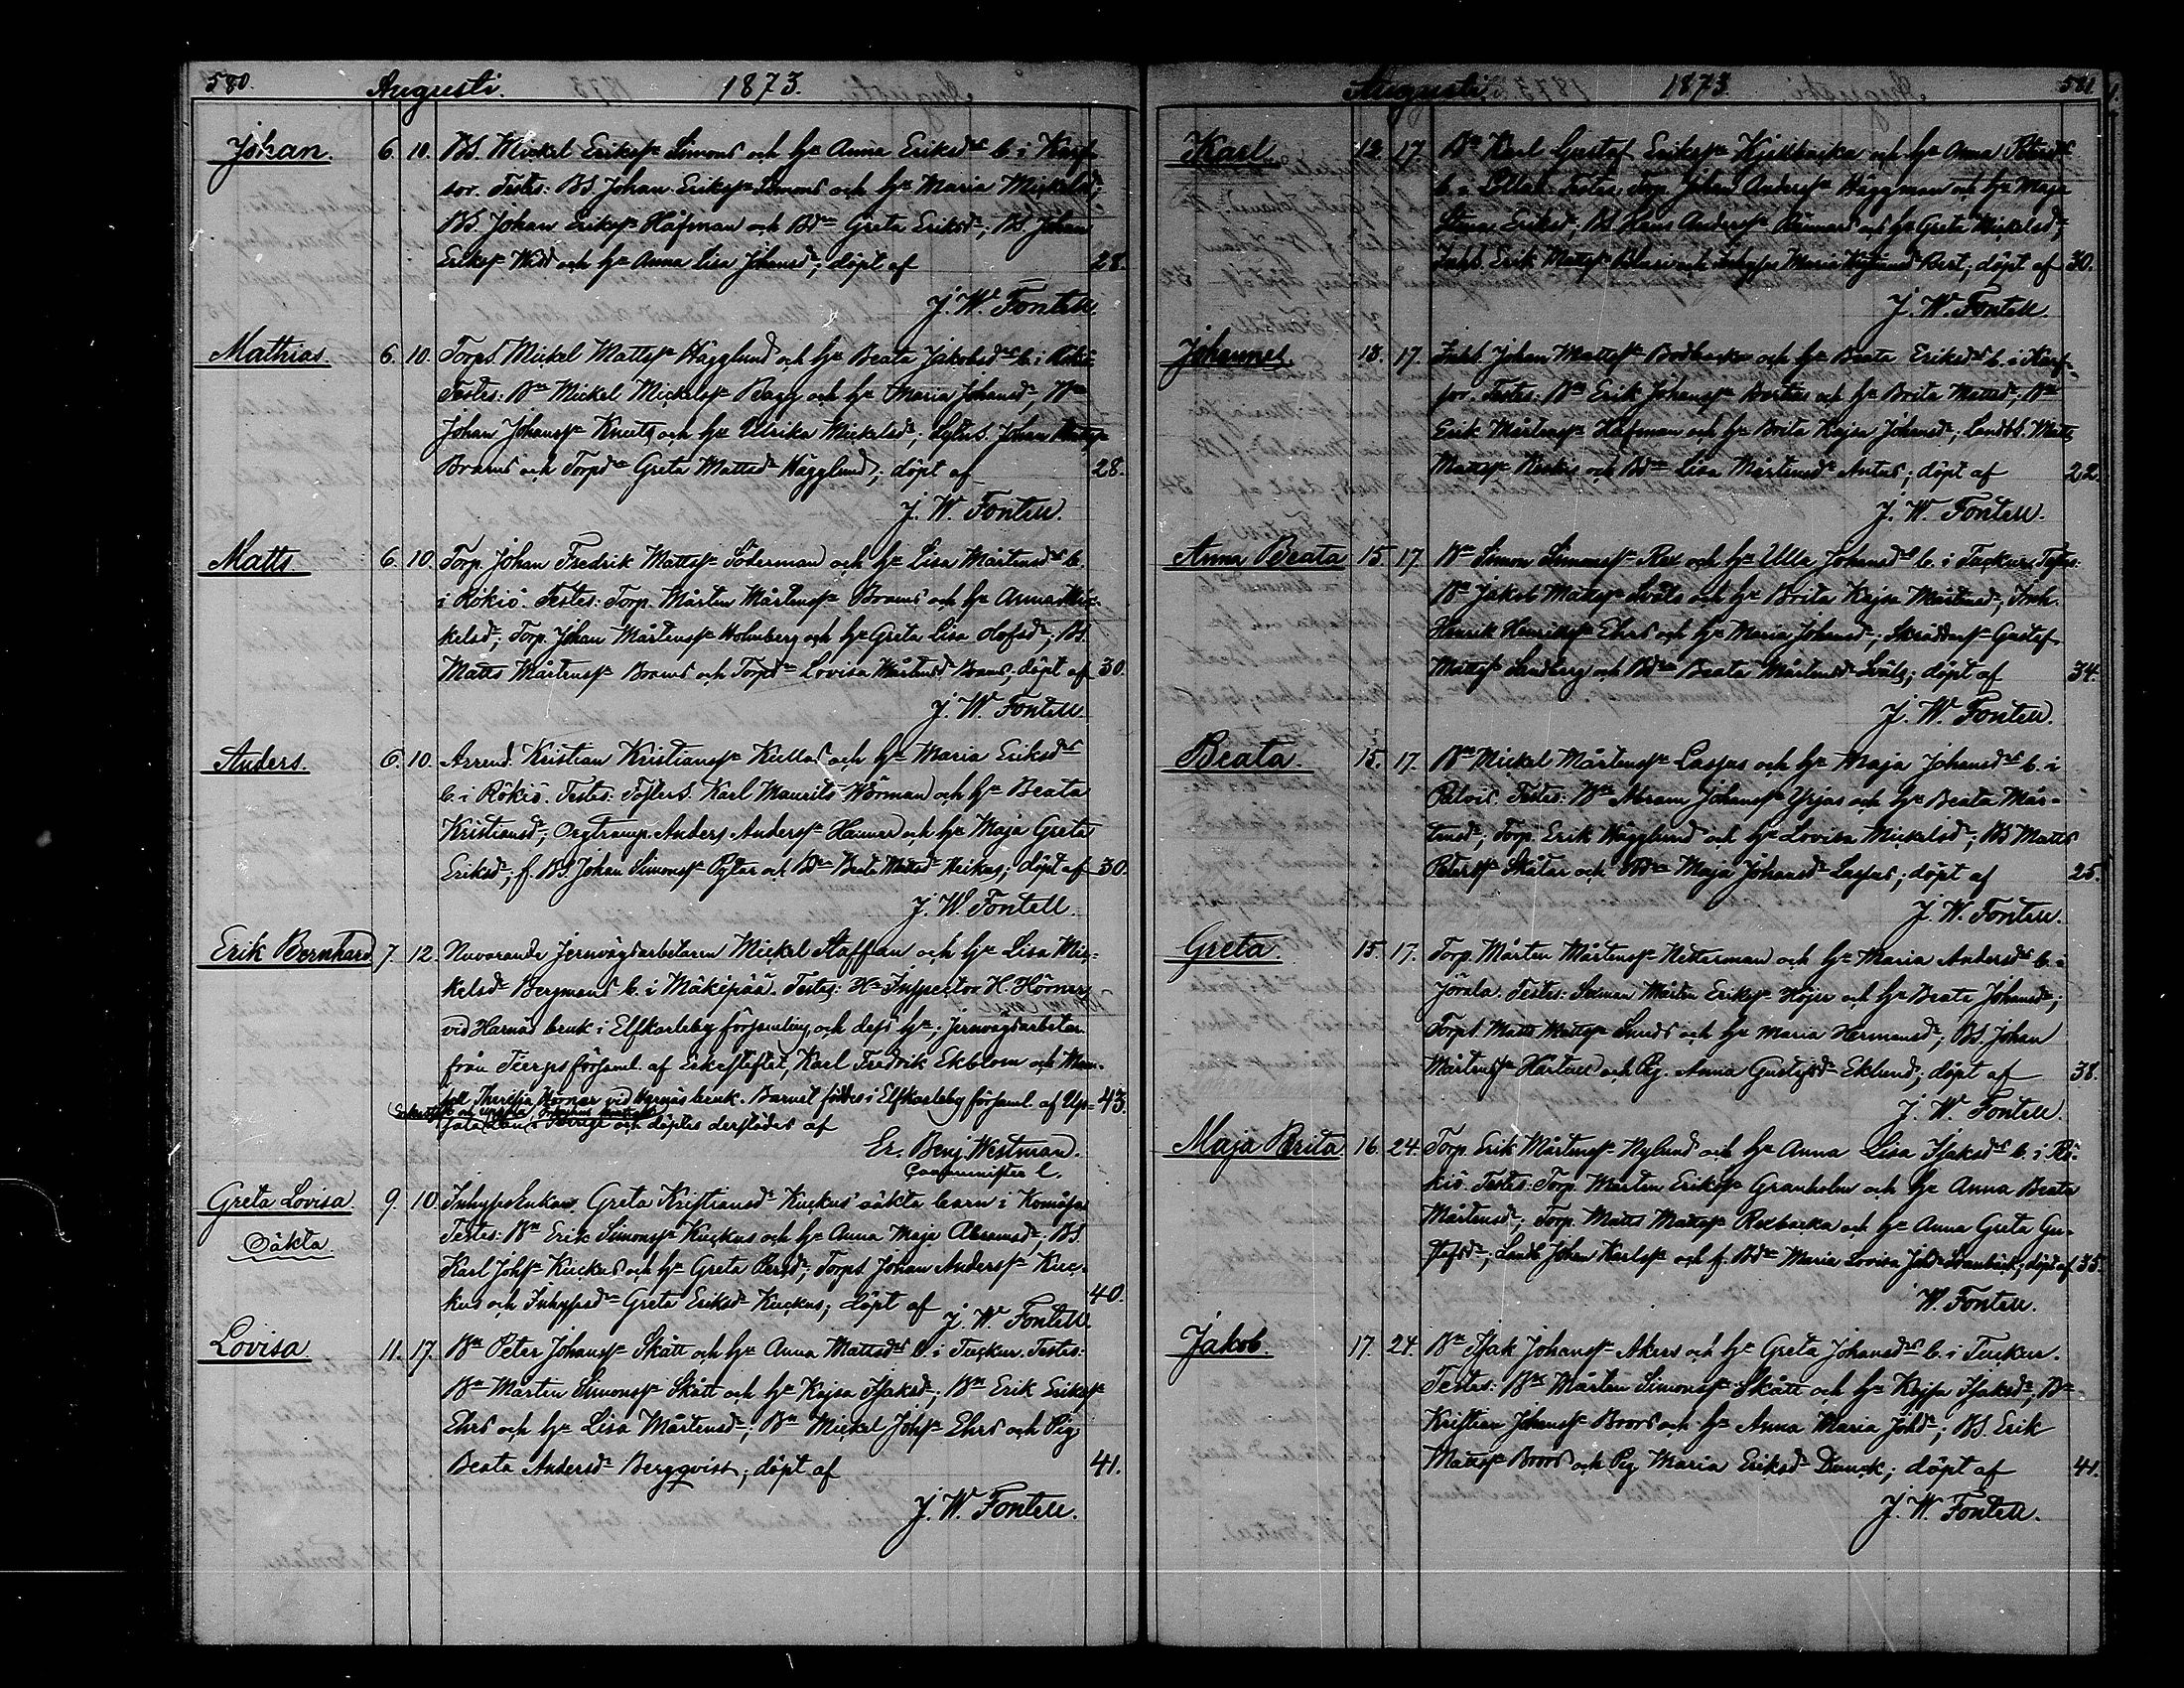 580. Augusti. 1873.
Johan. 6. 10. BS. Mickel Erikss Simons och hu Anna Eriksds b. i Karf-
sor. Testes: BS. Johan Erikss Simons och hu Maria Mickelsd;
BS. Johan Erikss Håfman och Bdr Greta Eriksd; BS. Johan
Erikss Widd och hu Anna Lisa Johansd; döpt af 28.
J. W. Fontell.
Mathias. 6. 10. TorpS. Mickel Mattss Hägglund och hu Beata Jakobsds b. i Rökiö
Testes: Bn Mickel Mickelss Bagg och hu Maria Johansd; Bn
Johan Johanss Knuts och hu Ulrika Mickelsd; SytnS. Johan Mattss
Brams och Torpdr Greta Mattsd Hägglund; döpt af 28.
J. W. Fontell.
Matts 6. 10. Torp. Johan Fredrik Mattss Söderman och hu Lisa Mårtensds b.
i Rökiö. Testes: Torp. Mårten Mårtenss Brams och hu Anna Mic-
kelsd; Torp. Johan Mårtenss Holmberg och hu Greta Lisa Olofsd; BS.
Matts Mårtenss Brams och Torpdr Lovisa Mårtensd Brams. döpt af 30.
J. W. Fontell.
Anders. 6. 10. Arrend. Kristian Kristianss Kullas och hu Maria Eriksds
b. i Rökiö. Testes: Karl Maurits Wörman och hu Beata
Kristiansd; Anders Anderss Haimas och hu Maja Greta
Eriksd; f. BS. Johan Simonss Pyttar och Bdr Beata Mattsd Heikus; döpt af 30.
J. W. Fontell.
Erik Bernhard 7. 12. Nuvarande Jernvägsarbetaren Mickel Staffan och hu Lisa Mic-
kelsd Bergmans b. i Mäkipää. Testes: Hr Inspector H. Hörner
vid Harnäs bruk i Elfkarleby församling och dess hu; Jernvägsarbetar.
från Tierps församl. af Erkestiftet, Karl Fredrik Ekblom och Mam-
sell Theresia Hörner vid Harnäs bruk. Barnet föddes i Elfkarleby församl. af Up- 43.
sala Län i Sverige och döptes derstädes af
Er. Benj. Westman.
Comminister l.
Greta Lovisa. 9. 10. InhyssEnkan Greta Kristiansd Kuckus oäkta barn i Komåsa
Oäkta Testes: Bn Erik Simonss Kuckus och hu Anna Maja Abramsd; BS.
Karl Johss Kuckus och hu Greta Persd; TorpS. Johan Anderss Kuc-
kus och Inhyssdr Greta Eriksd Kuckus; döpt af 40.
J. W. Fontell.
Lovisa. 11. 17. Bn Peter Johanss Skått och hu Anna Mattsds b. i Tuckur. Testes:
Bn Mårten Simonss Skått och hu Kajsa Isaksd; Bn Erik Erikss
Ehrs och hu Lisa Mårtensd; Bn Mickel Johss Ehrs och Pig.
Beata Andersd Bergqvist; döpt af 41.
J. W. Fontell.
Augusti. 1873 581
Karl 12. 17. Bn Karl Gustaf Erikss Kjellbacka och hu Anna
b. i Lotlax Testes: Torp. Johan Anderss Häggman och hu Maja
Stina Eriksd; BS. Hans Anderss och hu Greta Mickelsd;
Inhs. Erik Mattss Blusi och Maria Rest; döpt af 30.
J. W. Fontell.
Johannes. 13. 17. Inhs. Johan Mattss Bodbacka och hu Beata Eriksds b. i Karf-
sor. Testes: Bn Erik Johanss Bertils och hu Brita Mattsd; Bn
Erik Mårtenss Håfman och hu Brita Kajsa Johansd; Matts
Mattss Keskis och Bdr Lisa Mårtensd Antus; döpt af 22.
J. W. Fontell.
Anna Beata 15. 17. Bn Simon Simonss Rex och hu Ulla Johansds b. i Tuckur, Testes:
Bn Jakob Mattss Svåls och hu Brita Kajsa Mårtensd; Inh.
Henrik Henrikss Ehrs och hu Maria Johansd; Skräddarss Gustaf
Mattss Sandberg och Bdr Beata Mårtensd Svåls; döpt af 34.
J. W. Fontell.
Beata. 15. 17. Bn Mickel Mårtenss Lassus och hu Maja Johansds b. i
Pelvis. Testes: Bn Abram Johanss Yrjas och hu Beata Mår-
tensd; Torp. Erik Hägglund och hu Lovisa Mickelsd; BS Matts
Peterss Skatar och Bdr Maja Johansd Lassus; döpt af 25.
J. W. Fontell.
Greta. 15. 17. Torp. Mårten Mårtenss Hetterman och hu Maria Andersds b. i
Jörala. Testes: Seeman Mårten Erikss Höjer och hu Beata Johansd;
TorpS. Matts Mattss Sunds och hu Maria Hermansd; BS. Johan
Mårtenss Hartvik och Pig. Anna Gustafsd Eklund; döpt af 38.
J. W. Fontell.
Maja Brita 16. 24. Torp. Erik Mårtenss Nylund och hu Anna Lisa Isaksds b. i Rö-
kiö. Testes: Torp. Mårten Erikss Granholm och hu Anna Beata
Mårtensd; Torp. Matts Mattss Rexbacka och hu Anna Greta Gu-
stafsd; Landb. Johan Karlss och f. Bdr Maria Lovisa Johd Svanbäck; döpt af 35.
W. Fontell.
Jakob. 17. 24. Bn Isak Johanss Akers och hu Greta Johansds b. i Tuckur.
Testes: Bn Mårten Simonss Skått och hu Kajsa Isaksd; Bn
Kristian Johanss Boors och hu Anna Maria Johd; BS. Erik
Mattss Boors och Pig Maria Eriksd Dunck; döpt af 41.
J. W. Fontell.